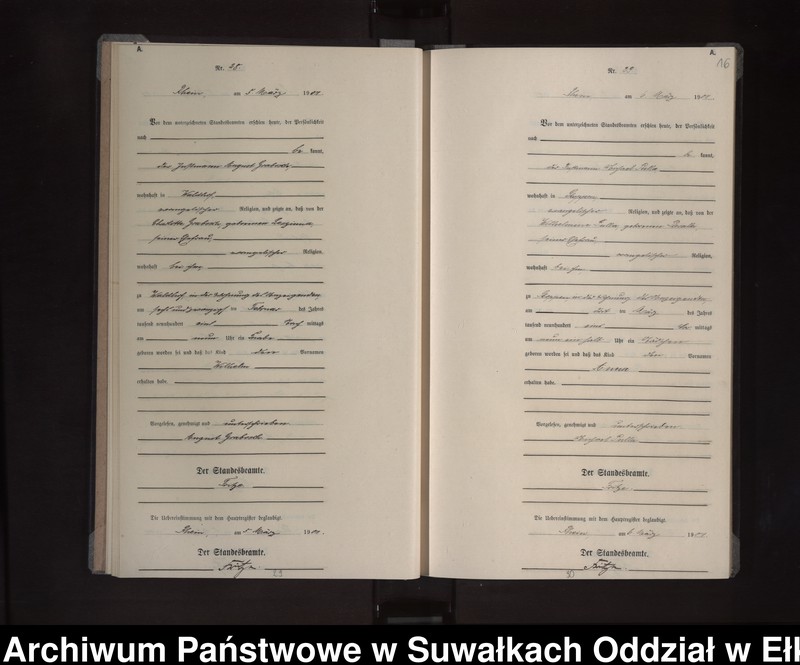 A.
Nr. 28.
Rhein, am 5. März 1901
Vor dem unterzeichneten Standesbeamten erschien heute, der Persönlichkeit
nach
be kannt,
der August Grabosch,
wohnhaft in Waldhof,
evangelischer Religion, und zeigte an, daß von der
Charlotte Grabosch, geborenen
seiner Ehefrau,
evangelischer Religion,
wohnhaft bei ihm,
zu Waldhof, in der Wohnung des Anzeigenden
am sechs und zwanzigsten Februar des Jahres
tausend neunhundert eins Nach mittags
um neun Uhr ein Knabe
geboren worden sei und daß das Kind den Vornamen
Wilhelm
erhalten habe.
Vorgelesen, genehmigt und unterschrieben
August Grabosch
Der Standesbeamte.
Die Uebereinstimmung mit dem Hauptregister beglaubigt.
Rhein, am 5. März 1901.
Der Standesbeamte.
A.
16
Nr. 29.
Rhein, am 6. März 1901
Vor dem unterzeichneten Standesbeamten erschien heute, der Persönlichkeit
nach
be kannt,
der
wohnhaft in
evangelischer Religion, und zeigte an, daß von der
Wilhelmine geborenen
seiner Ehefrau
evangelischer Religion,
wohnhaft bei ihm
zu in der Wohnung des Anzeigenden
am März des Jahres
tausend neunhundert eins Vor mittags
um neun ein halb Uhr ein Mädchen
geboren worden sei und daß das Kind den Vornamen
erhalten habe.
Vorgelesen, genehmigt und unterschrieben
Der Standesbeamte.
Die Uebereinstimmung mit dem Hauptregister beglaubigt.
Rhein am 6. März 1901
Der Standesbeamte.
Archiwum Państwowe w Suwałkach Oddział w Ełk